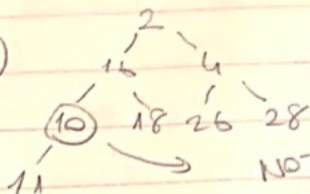 )
2
16 4
10 18 26 28
11 NO